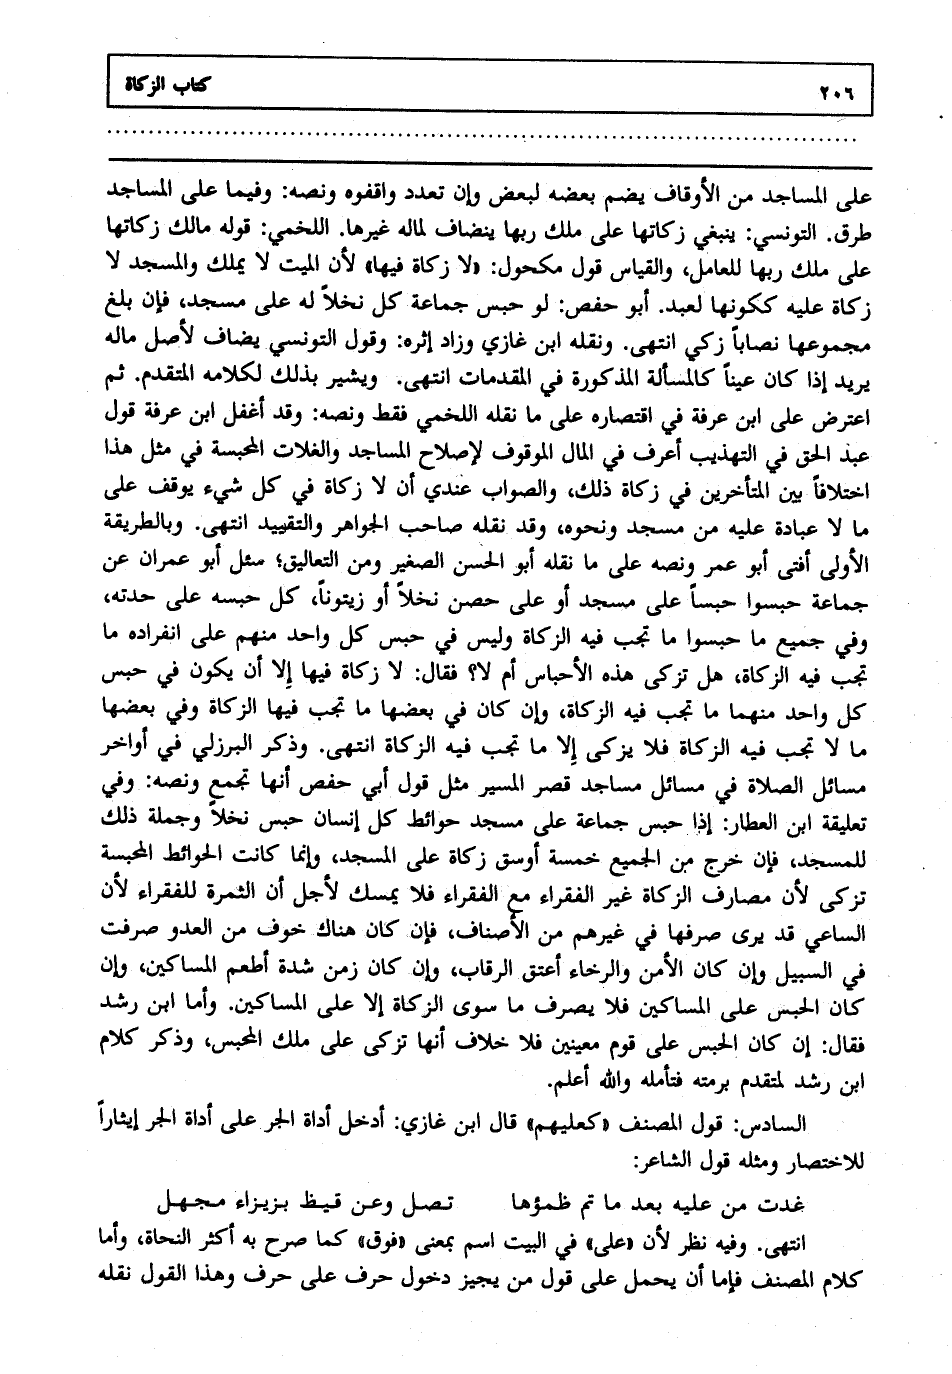 ٢٠٦ كتاب الزكاة
على المساجد من الأوقاف يضم بعضه لبعض وإن تعدد واقفوه ونصه: وفيما على المساجد
طرق. التونسي: ينبغي زكاتها على ملك ربها ينضاف لماله غيرها. اللخمي: قوله مالك زكاتها
على ملك ربها للعامل، والقياس قول مكحول: «لا زكاة فيها» لأن الميت لا يملك والمسجد لا
زكاة عليه ككونها لعبد. أبو حفص: لو حبس جماعة كل نخلاً له على مسجد، فإن بلغ
مجموعها نصاباً زكي انتهى. ونقله ابن غازي وزاد إثره: وقول التونسي يضاف لأصل ماله
يريد إذا كان عيناً كالمسألة المذكورة في المقدمات انتهى. ويشير بذلك لكلامه المتقدم. ثم
اعترض على ابن عرفة في اقتصاره على ما نقله اللخمي فقط ونصه: وقد أغفل ابن عرفة قول
عبد الحق في التهذيب أعرف في المال الموقوف لإصلاح المساجد والغلات المحبسة في مثل هذا
اختلافاً بين المتأخرين في زكاة ذلك، والصواب عندي أن لا زكاة في كل شيء يوقف على
ما لا عبادة عليه من مسجد ونحوه، وقد نقله صاحب الجواهر والتقييد انتهى. وبالطريقة
الأولى أفتى أبو عمر ونصه على ما نقله أبو الحسن الصغير ومن التعاليق؛ سئل أبو عمران عن
جماعة حبسوا حبساً على مسجد أو على حصن نخلاً أو زيتوناً، كل حبسه على حدته،
وفي جميع ما حبسوا ما تجب فيه الزكاة وليس في حبس كل واحد منهم على انفراده ما
تجب فيه الزكاة، هل تزكى هذه الأحباس أم لا؟ فقال: لا زكاة فيها إلا أن يكون في حبس
كل واحد منهما ما تجب فيه الزكاة، وإن كان في بعضها ما تجب فيها الزكاة وفي بعضها
ما لا تجب فيه الزكاة فلا يزكى إلا ما تجب فيه الزكاة انتهى. وذكر البرزلي في أواخر
مسائل الصلاة في مسائل مساجد قصر المسير مثل قول أبي حفص أنها تجمع ونصه: وفي
تعليقة ابن العطار: إذا حبس جماعة على مسجد حوائط كل إنسان حبس نخلاً وجملة ذلك
للمسجد، فإن خرج من الجميع خمسة أوسق زكاة على المسجد، وإنما كانت الحوائط المحبسة
تزكى لأن مصارف الزكاة غير الفقراء مع الفقراء فلا يمسك لأجل أن الثمرة للفقراء لأن
الساعي قد يرى صرفها في غيرهم من الأصناف، فإن كان هناك خوف من العدو صرفت
في السبيل وإن كان الأمن والرخاء أعتق الرقاب، وإن كان زمن شدة أطعم المساكين، وإن
كان الحبس على المساكين فلا يصرف ما سوى الزكاة إلا على المساكين. وأما ابن رشد
فقال: إن كان الحبس على قوم معينين فلا خلاف أنها تزكى على ملك المحبس، وذكر كلام
ابن رشد لمتقدم برمته فتأمله والله أعلم.
السادس: قول المصنف «كعليهم» قال ابن غازي: أدخل أداة الجر على أداة الجر إيثاراً
للاختصار ومثله قول الشاعر:
غدت من عليه بعد ما تم ظمؤها تصل وعن قيظ بزيزاء مجهل
انتهى. وفيه نظر لأن «على» في البيت اسم بمعنى «فوق» كما صرح به أكثر النحاة، وأما
كلام المصنف فإما أن يحمل على قول من يجيز دخول حرف على حرف وهذا القول نقله